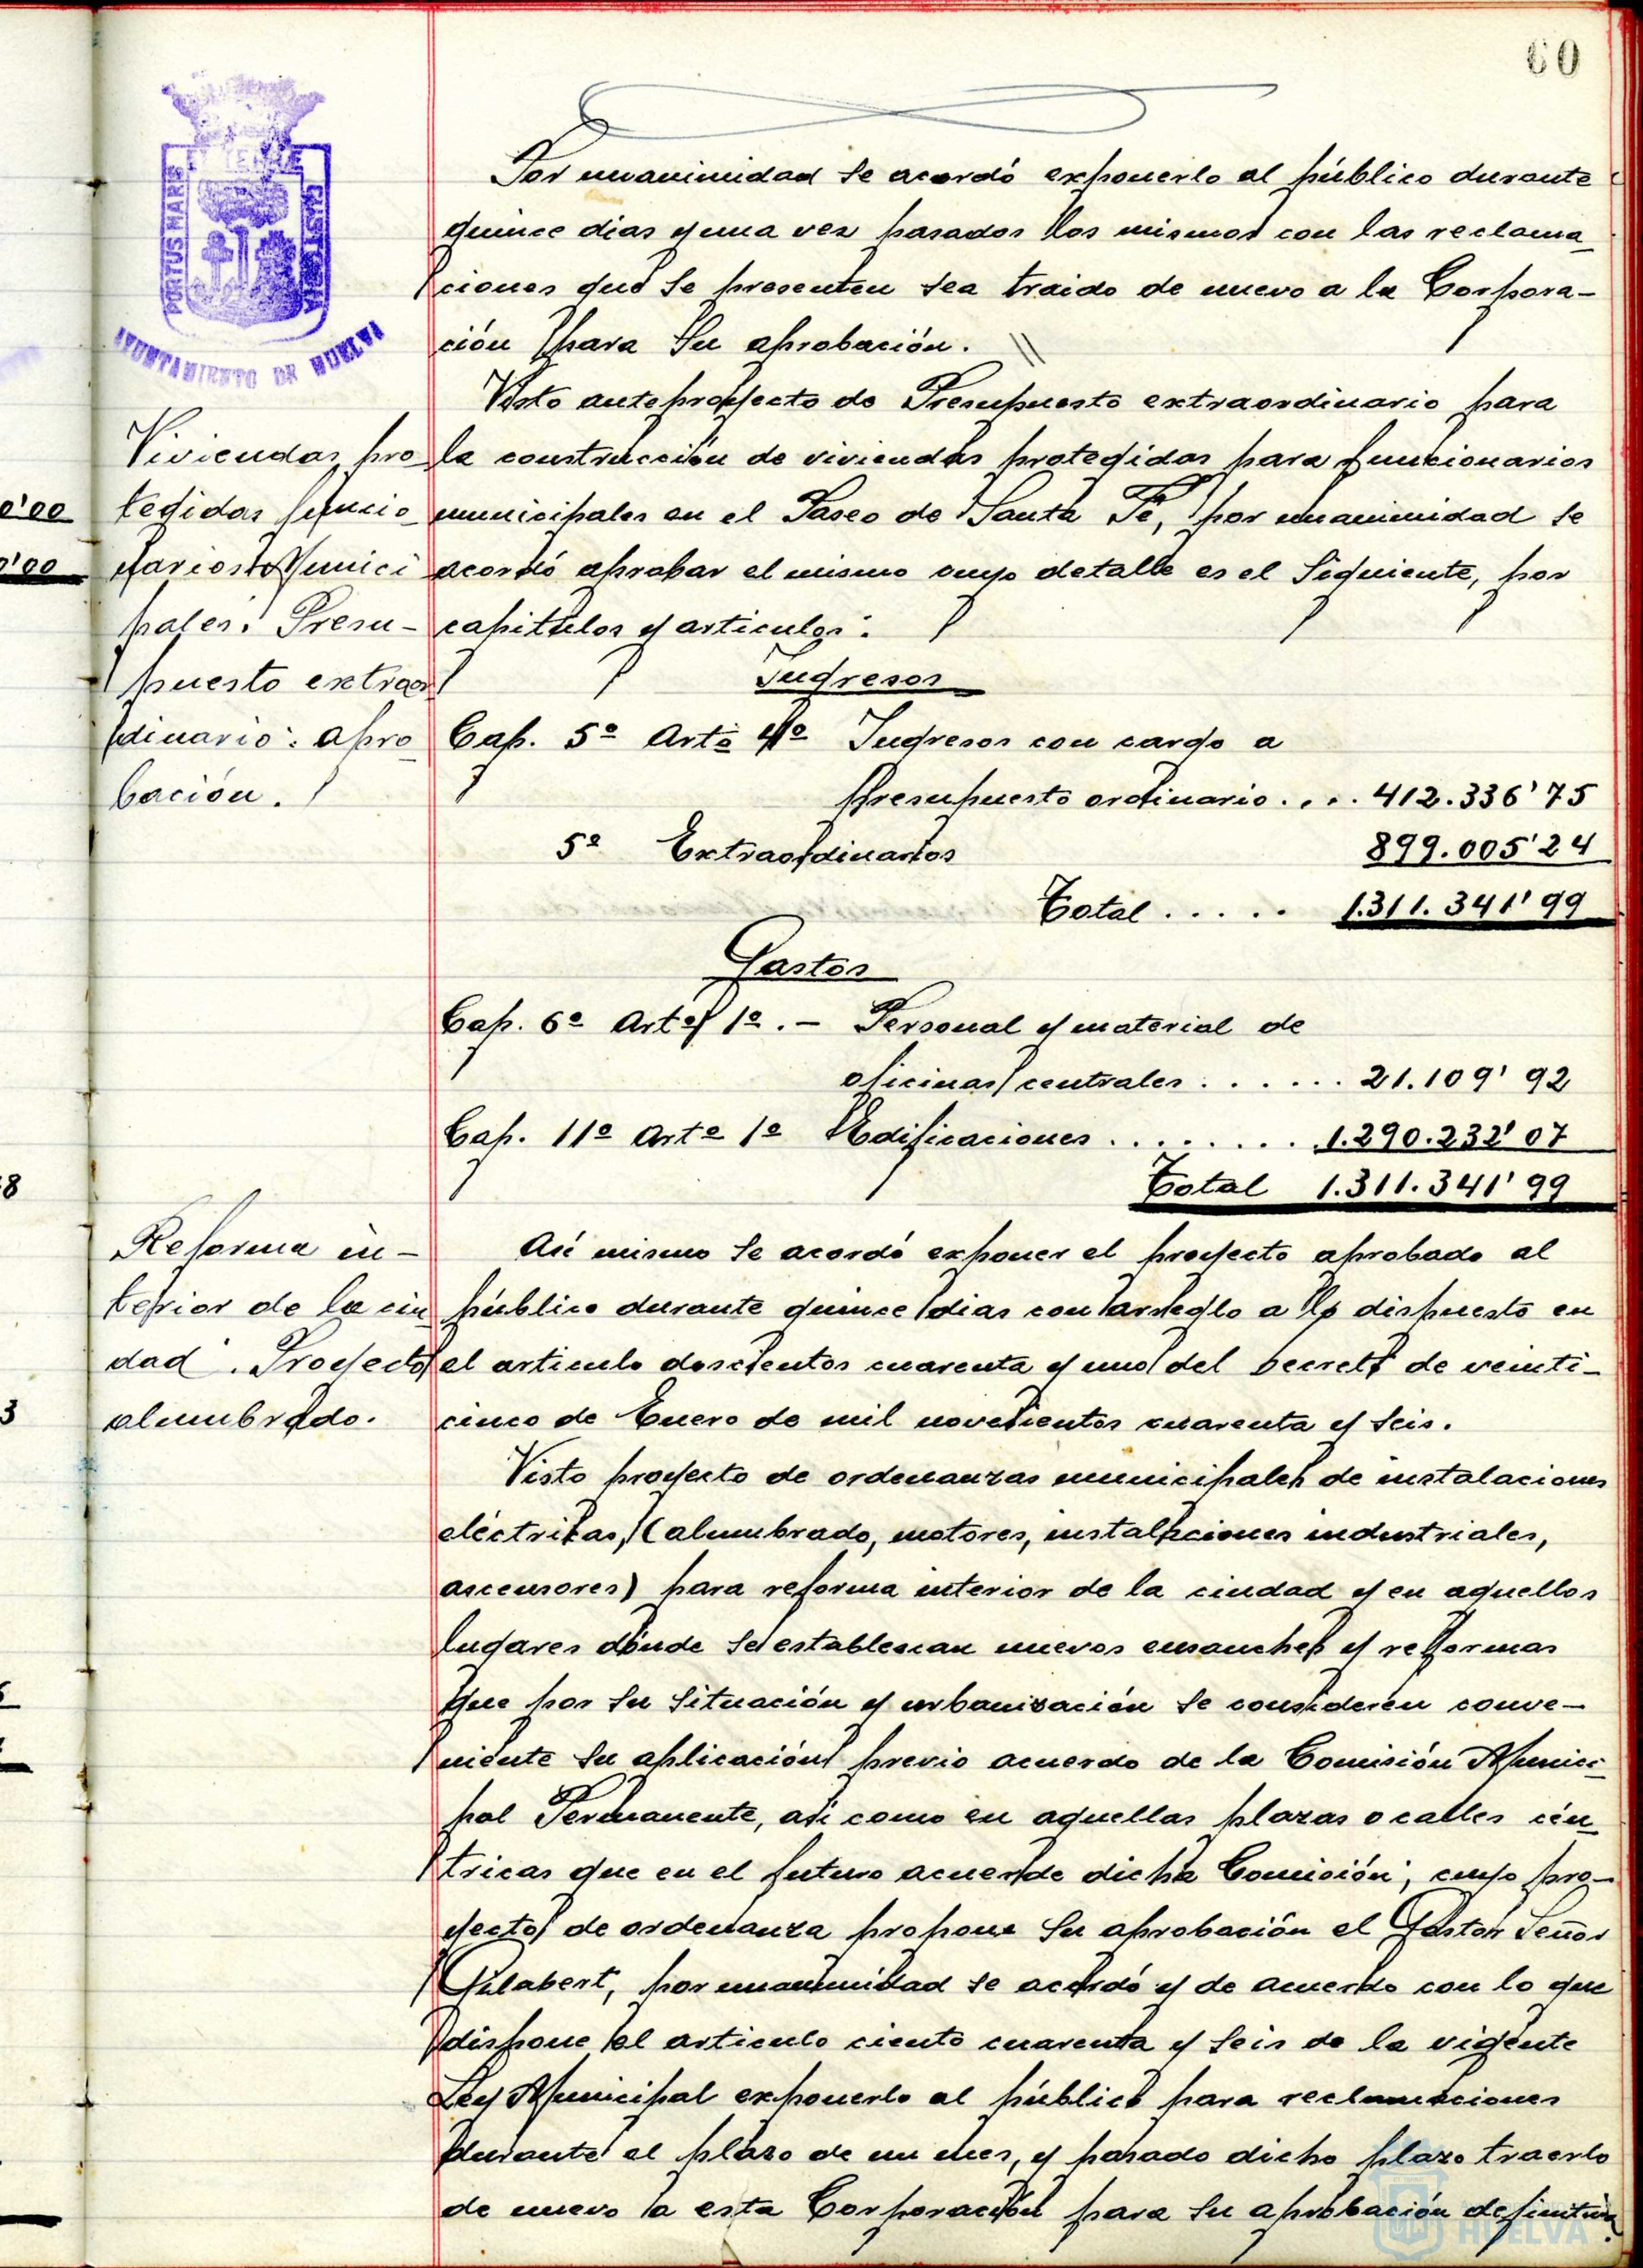 60
Por unanimidad se acordó exponerlo al público durante
quince dias y una vez pasados los mismos con las reclama
ciones que se presenten sea traido de nuevo a la Corpora-
ción para su aprobación.
Visto anteproyecto de Presupuesto extraordinario para
la construcción de viviendas protegidas para funcionarios
municipales en el Paseo de Santa Fé, por unanimidad se
acordó aprobar el mismo cuyo detalle es el siguiente, por
capitulos y articulos:
Ingresos
Cap. 5º Artº 4º Ingresos con cargo a
Presupuesto ordinario.... 412.336'75
5º Extraordinarios 899.005'24
Total..... 1.311.341'99
Gastos
Cap. 6º Artº 1º.- Personal y material de
oficinas centrales...... 21.109'92
Cap. 11º Artº 1º Edificaciones........ 1.290.232'07
Total 1.311.341'99
Asi mismo se acordó exponer el proyecto aprobado al
público durante quince dias con arreglo a lo dispuesto en
el articulo doscientos cuarenta y uno del Decreto de veinti-
cinco de Enero de mil novecientos cuarenta y seis.
Visto proyecto de ordenanzas municipales de instalaciones
eléctricas, (alumbrado, motores, instalaciones industriales,
ascensores) para reforma interior de la ciudad y en aquellos
lugares donde se establezcan nuevos ensanches y reformas
que por su situación y urbanización se consideren conve-
niente su aplicación previo acuerdo de la Comisión Munici
pal Permanente, asi como en aquellas plazas o calles cén
tricas que en el futuro acuerde dicha Comisión; cuyo pro-
yecto de ordenanza propone su aprobación el Gestor Señor
Gilabert, por unanimidad se acordó y de acuerdo con lo que
dispone el articulo ciento cuarenta y seis de la vigente
Ley Municipal exponerlo al público para reclamaciones
durante el plazo de un mes, y pasado dicho plazo traerlo
de nuevo a esta Corporación para su aprobación definitiva.
Viviendas pro
tegidas funcio
narios Munici
pales: Presu-
puesto extraor
dinario: apro
bación.
Reforma in-
terior de la ciu
dad. Proyecto
alumbrado.
PORTUS MARIS
ET TERRE
CUSTODIA
AYUNTAMIENTO DE HUELVA
0'00
0'00
8
3
HUELVA